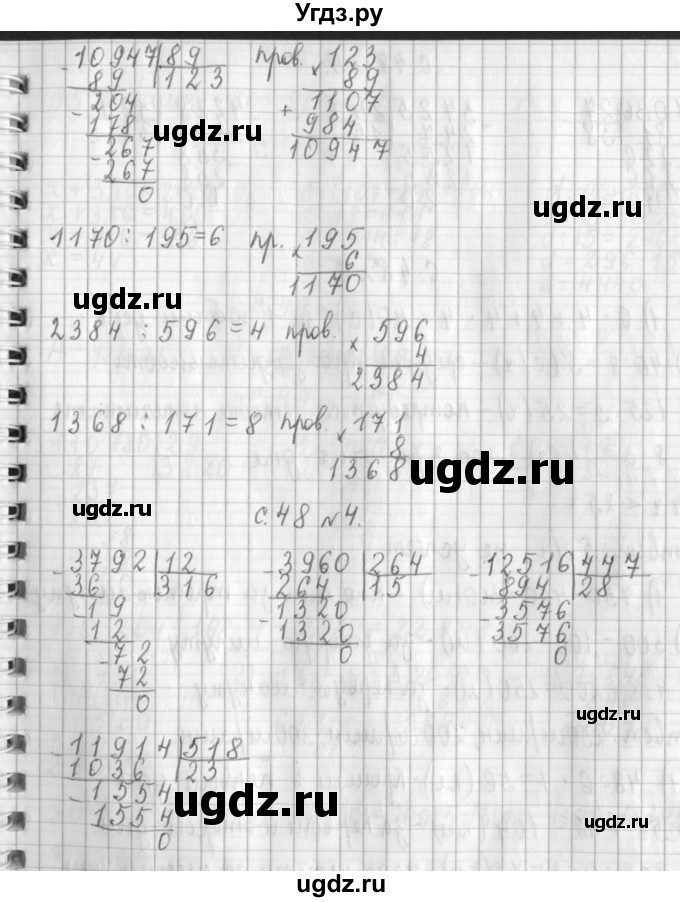 Угдз.ру
10947 89 пров. 123
89 123 × 89
204 + 1107
178 984
267 10947
267
0
ugdz.ru
ugdz.ru
1170 : 195 = 6 пр. 195
× 6
1170
ugdz.ru
2384 : 596 = 4 пров. 596
× 4
2384
1368 : 171 = 8 пров. 171
× 8
1368
ugdz.ru
с. 48 № 4.
ugdz.ru
- 3792 12 - 3960 264 - 12516 447
36 316 264 15 894 28
- 19 - 1320 - 3576
12 1320 3576
- 72 0 0
72
0
ugdz.ru
- 11914 518
1036 23
- 1554
1554
0
ugdz.ru
ugdz.ru
ugdz.ru